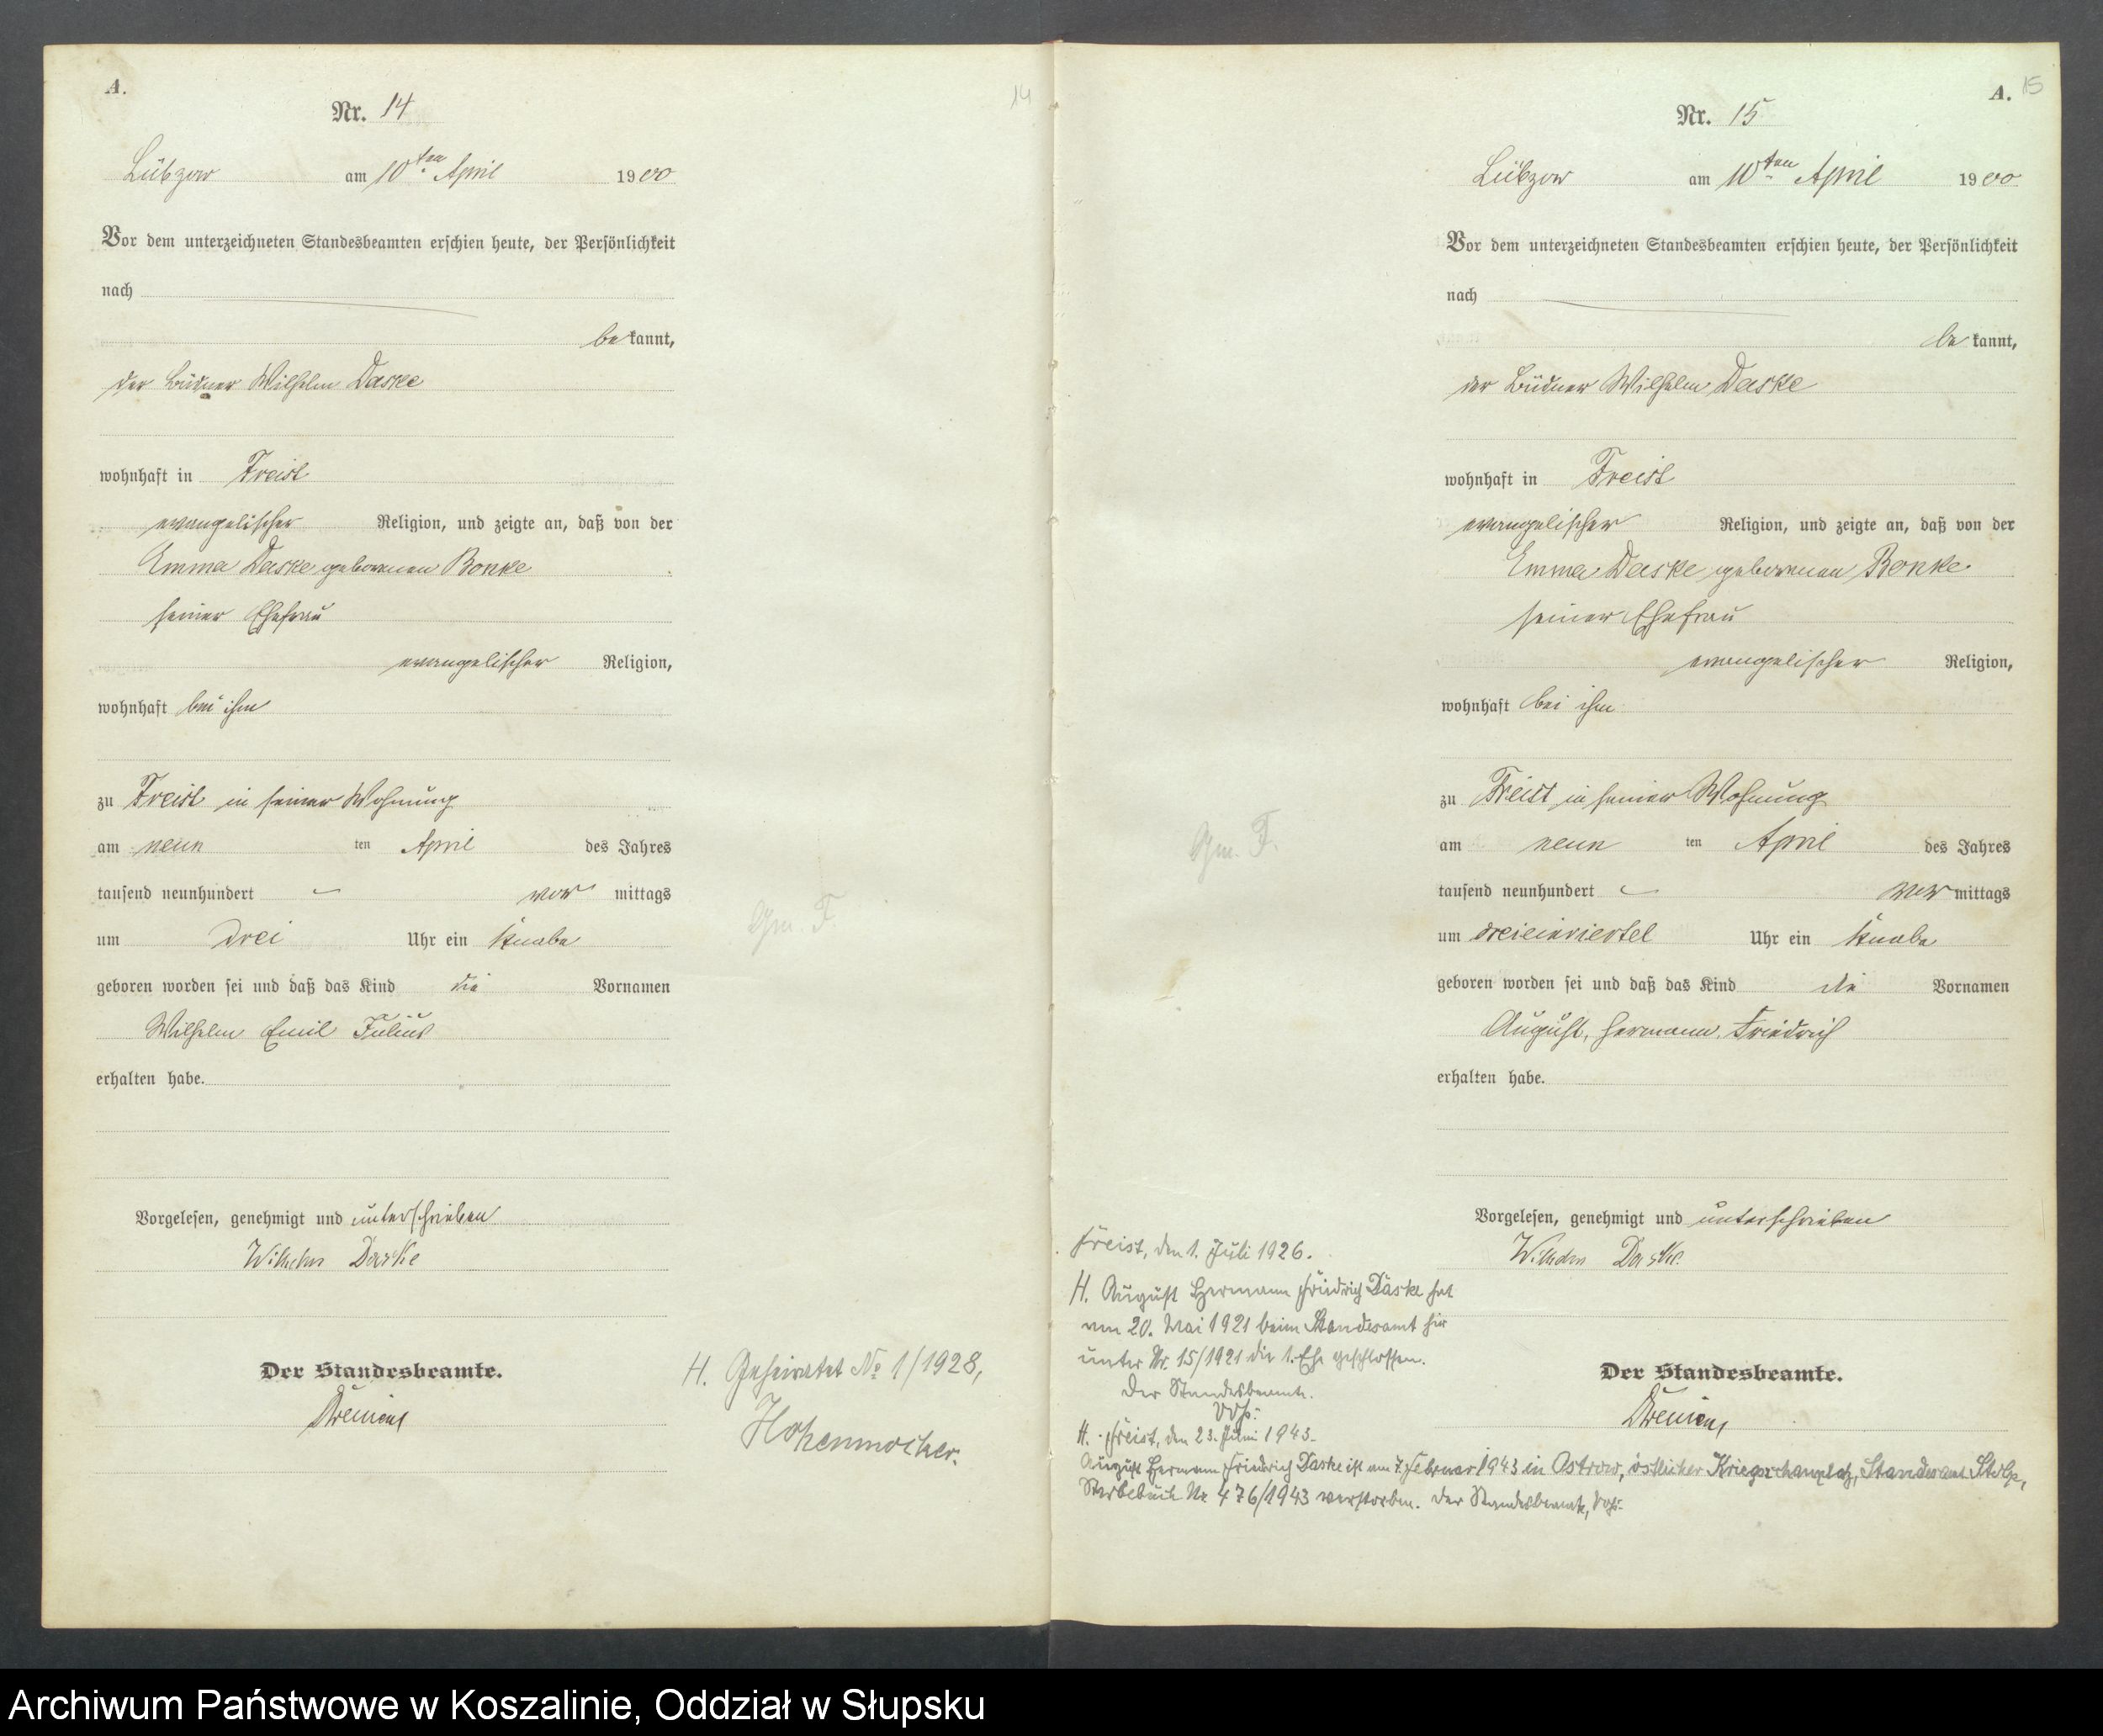 A.
Nr. 14
14
Lübzow am 10ten April 1900
Vor dem unterzeichneten Standesbeamten erschien heute, der Persönlichkeit
nach
be kannt,
der Büdner Wilhelm Daske
wohnhaft in Freist
evangelischer Religion, und zeigte an, daß von der
Emma Daske geborenen Bonke
seiner Ehefrau
evangelischer Religion,
wohnhaft bei ihm
zu Freist in seiner Wohnung
am neun ten April des Jahres
tausend neunhundert vor mittags
um drei Uhr ein Knabe
geboren worden sei und daß das Kind die Vornamen
Wilhelm Emil Julius
erhalten habe.
Vorgelesen, genehmigt und unterschrieben
Wilhelm Daske
Der Standesbeamte.
Gm. F.
H. Geheiratet No 1/1928,
A. 15
Nr. 15
Lübzow am 10ten April 1900
Vor dem unterzeichneten Standesbeamten erschien heute, der Persönlichkeit
nach
be kannt,
der Büdner Wilhelm Daske
wohnhaft in Freist
evangelischer Religion, und zeigte an, daß von der
Emma Daske geborenen Bonke
seiner Ehefrau
evangelischer Religion,
wohnhaft bei ihm
zu Freist in seiner Wohnung
am neun ten April des Jahres
tausend neunhundert vor mittags
um dreieinviertel Uhr ein Knabe
geboren worden sei und daß das Kind die Vornamen
August, Hermann, Friedrich
erhalten habe.
Vorgelesen, genehmigt und unterschrieben
Wilhelm Daske
Der Standesbeamte.
Gm. F.
Freist, den 1. Juli 1926.
H. August Hermann Friedrich Daske hat
am 20. Mai 1921 beim Standesamt hier
unter Nr. 15/1921 die 1. Ehe geschlossen.
Der Standesbeamte.
H. Freist, den 23. Juni 1943.
August Hermann Friedrich Daske ist am 7. Februar 1943 in Ostrow, östlicher Kriegsschauplatz, Standesamt Stolp,
Sterbebuch Nr 476/1943 verstorben. Der Standesbeamte,
Archiwum Państwowe w Koszalinie, Oddział w Słupsku